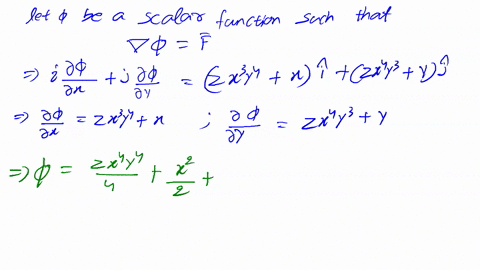 let φ be a scalar function such that
∇φ = F̄
⇒ i ∂φ/∂x + j ∂φ/∂y = (2x³y⁴ + x) î + (2x⁴y³ + y) ĵ
⇒ ∂φ/∂x = 2x³y⁴ + x ; ∂φ/∂y = 2x⁴y³ + y
⇒ φ = 2x⁴y⁴/4 + x²/2 +